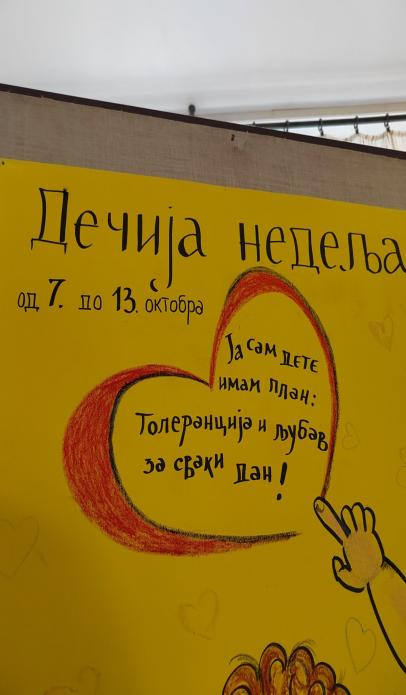 Дечија недеља
од 7. до 13. октобра
Ја сам дете
имам план:
Толеранција и љубав
за сваки дан!